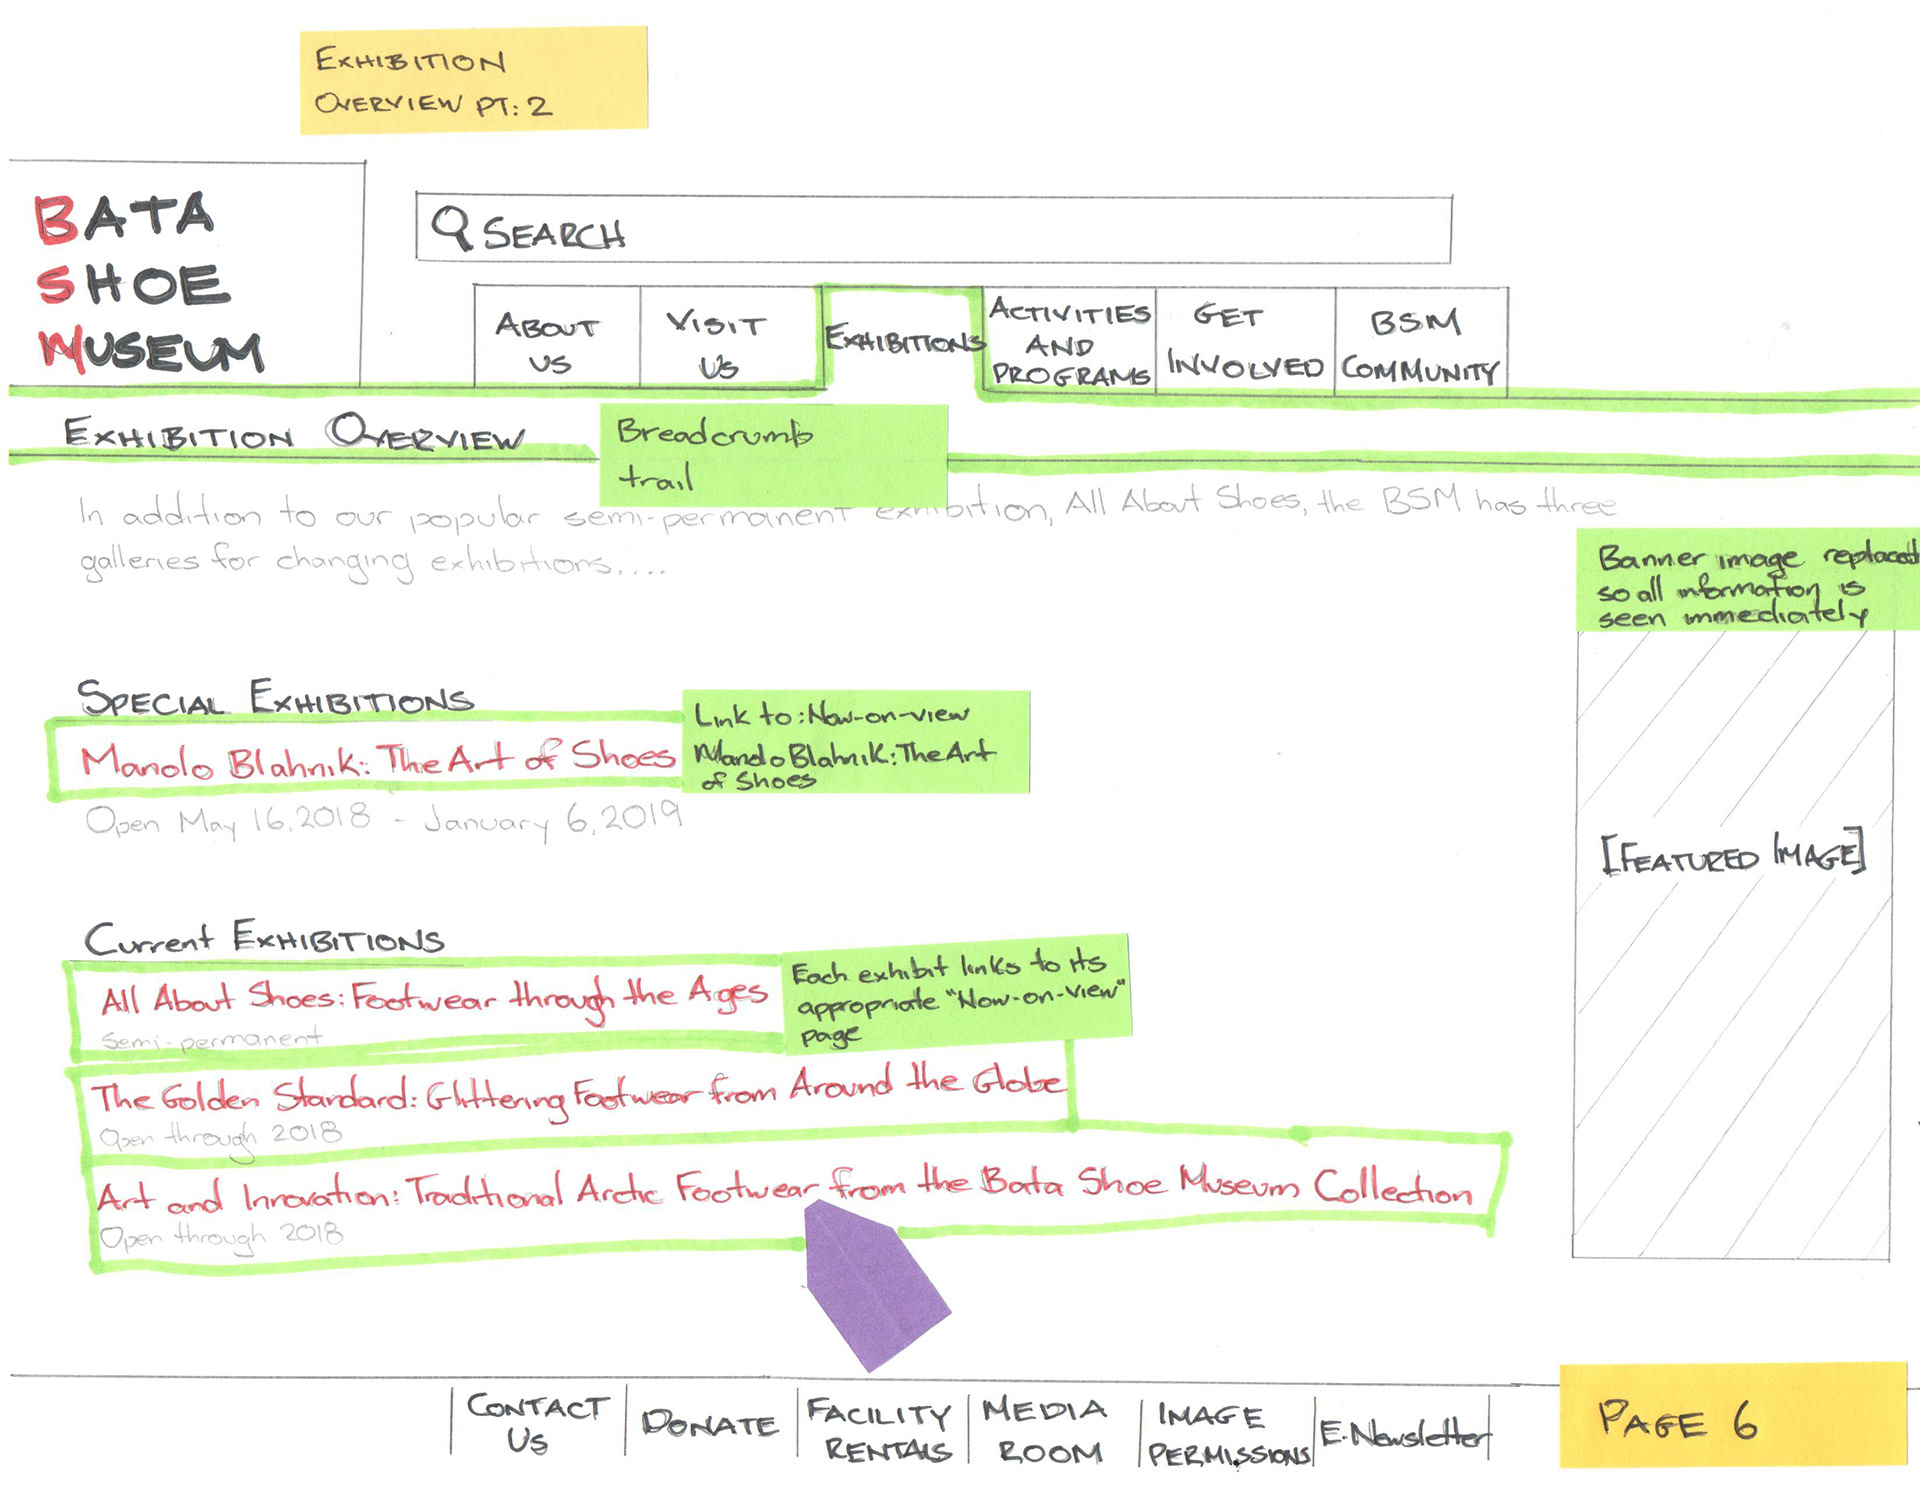 EXHIBITION
OVERVIEW PT: 2
BATA
SHOE
MUSEUM
SEARCH
ABOUT
US
VISIT
US
EXHIBITIONS
ACTIVITIES
AND
PROGRAMS
GET
INVOLVED
BSM
COMMUNITY
EXHIBITION OVERVIEW
Breadcrumb
trail
In addition to our popular semi-permanent exhibition, All About Shoes, the BSM has three
galleries for changing exhibitions....
Banner image replaced
so all information is
seen immediately
SPECIAL EXHIBITIONS
Manolo Blahnik: The Art of Shoes
Link to: Now-on-view
Manolo Blahnik: The Art
of Shoes
Open May 16, 2018 - January 6, 2019
[FEATURED IMAGE]
Current EXHIBITIONS
All About Shoes: Footwear through the Ages
Semi-permanent
Each exhibit links to its
appropriate "Now-on-view"
page
The Golden Standard: Glittering Footwear from Around the Globe
Open through 2018
Art and Innovation: Traditional Arctic Footwear from the Bata Shoe Museum Collection
Open through 2018
CONTACT
US
DONATE
FACILITY
RENTALS
MEDIA
ROOM
IMAGE
PERMISSIONS
E-Newsletter
PAGE 6